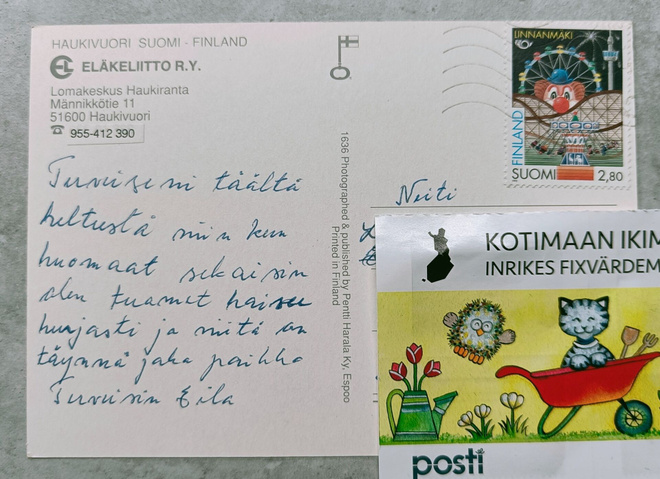 HAUKIVUORI SUOMI - FINLAND
EL ELÄKELIITTO R.Y.
Lomakeskus Haukiranta
Männikkötie 11
51600 Haukivuori
☎ 955-412 390
Terveiseni täältä
helteestä niin kun
huomaat sekaisin
olen tuomet haisee
hurjasti ja niitä on
täynnä joka paikka
Terveisin Eila
1636 Photographed & published by Pentti Harala Ky, Espoo
Printed in Finland
LINNANMÄKI
FINLAND
SUOMI 2,80
Neiti
KOTIMAAN IKIM
INRIKES FIXVÄRDEM
posti